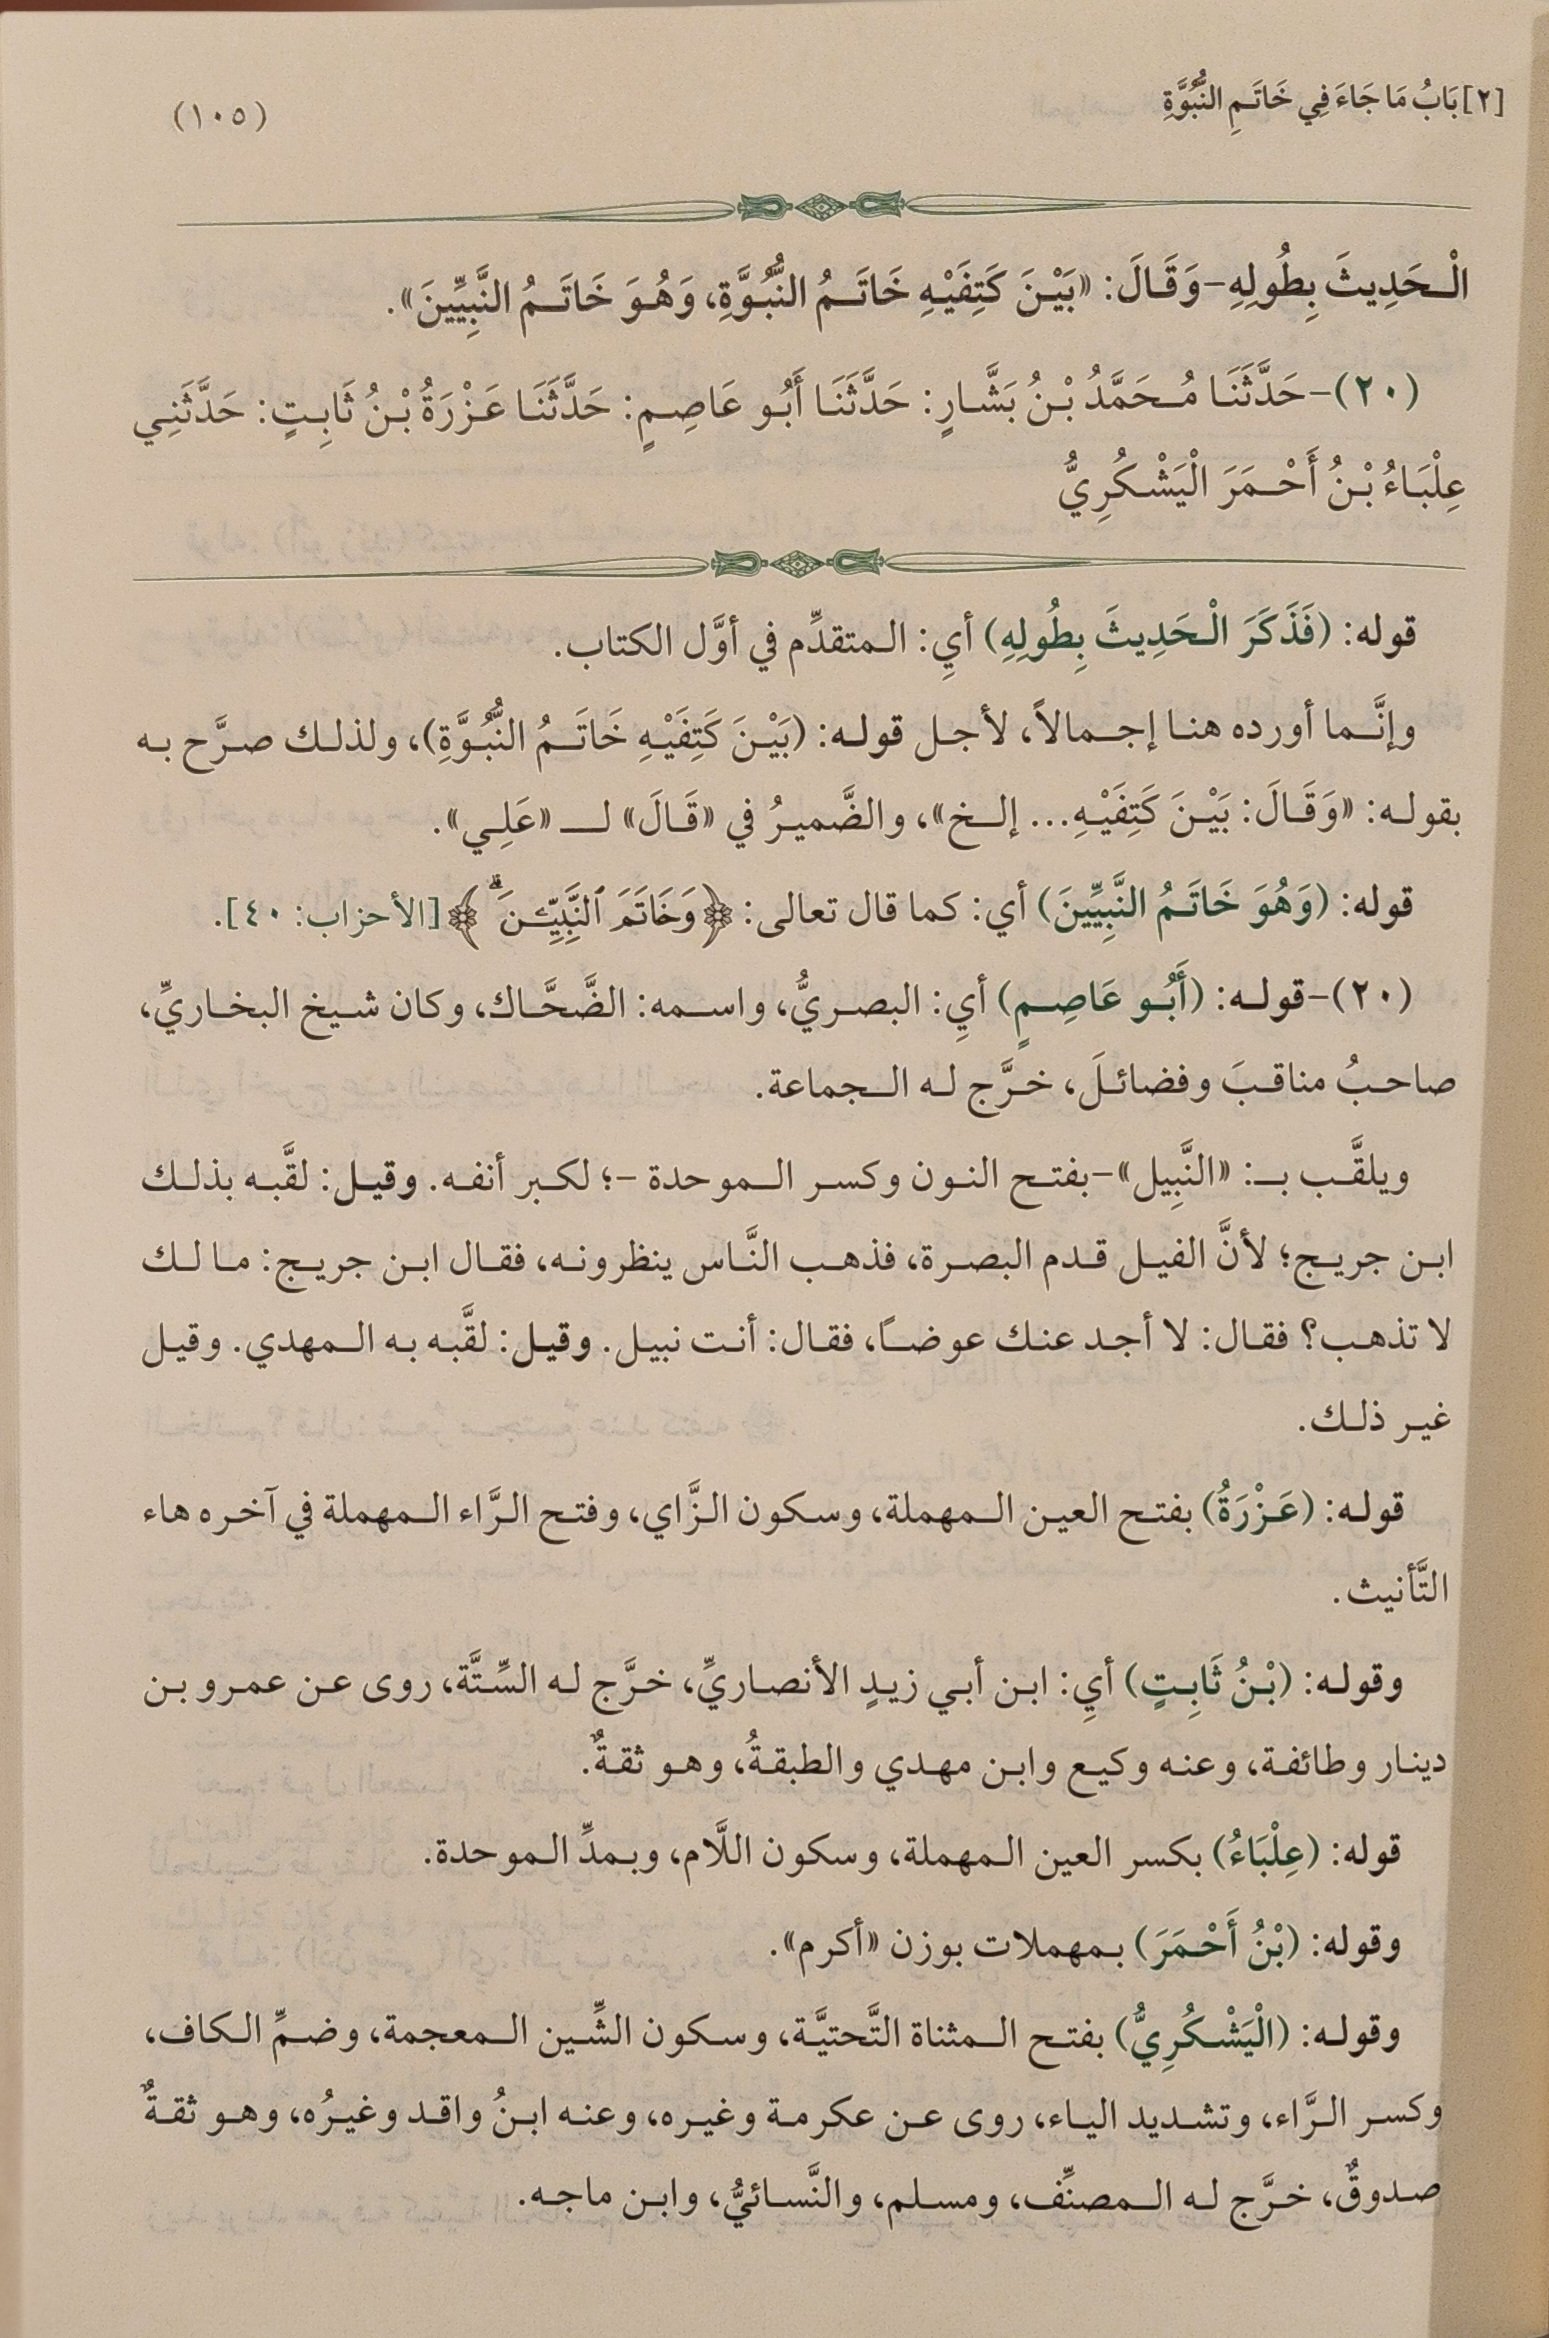 [٢] بَابُ مَا جَاءَ فِي خَاتَمِ النُّبُوَّةِ
(١٠٥)
الْحَدِيثَ بِطُولِهِ-وَقَالَ: «بَيْنَ كَتِفَيْهِ خَاتَمُ النُّبُوَّةِ، وَهُوَ خَاتَمُ النَّبِيِّينَ».
(٢٠)-حَدَّثَنَا مُحَمَّدُ بْنُ بَشَّارٍ: حَدَّثَنَا أَبُو عَاصِمٍ: حَدَّثَنَا عَزْرَةُ بْنُ ثَابِتٍ: حَدَّثَنِي
عِلْبَاءُ بْنُ أَحْمَرَ الْيَشْكُرِيُّ
قوله: (فَذَكَرَ الْحَدِيثَ بِطُولِهِ) أيِ: المتقدِّم في أوَّل الكتاب.
وإنَّما أورده هنا إجمالاً، لأجل قوله: (بَيْنَ كَتِفَيْهِ خَاتَمُ النُّبُوَّةِ)، ولذلك صرَّح به
بقوله: «وَقَالَ: بَيْنَ كَتِفَيْهِ... إلخ»، والضَّميرُ في «قَالَ» لـ «عَلِي».
قوله: (وَهُوَ خَاتَمُ النَّبِيِّينَ) أي: كما قال تعالى: ﴿وَخَاتَمَ ٱلنَّبِيِّـۧنَۗ﴾ [الأحزاب: ٤٠].
(٢٠)-قوله: (أَبُو عَاصِمٍ) أيِ: البصريُّ، واسمه: الضَّحَّاك، وكان شيخ البخاريِّ،
صاحبُ مناقبَ وفضائلَ، خرَّج له الجماعة.
ويلقَّب بـ: «النَّبِيل»-بفتح النون وكسر الموحدة-؛ لكبر أنفه. وقيل: لقَّبه بذلك
ابن جريج؛ لأنَّ الفيل قدم البصرة، فذهب النَّاس ينظرونه، فقال ابن جريج: ما لك
لا تذهب؟ فقال: لا أجد عنك عوضاً، فقال: أنت نبيل. وقيل: لقَّبه به المهدي. وقيل
غير ذلك.
قوله: (عَزْرَةُ) بفتح العين المهملة، وسكون الزَّاي، وفتح الرَّاء المهملة في آخره هاء
التَّأنيث.
وقوله: (بْنُ ثَابِتٍ) أيِ: ابن أبي زيدٍ الأنصاريِّ، خرَّج له السِّتَّة، روى عن عمرو بن
دينار وطائفة، وعنه وكيع وابن مهدي والطبقةُ، وهو ثقةٌ.
قوله: (عِلْبَاءُ) بكسر العين المهملة، وسكون اللَّام، وبمدِّ الموحدة.
وقوله: (بْنُ أَحْمَرَ) بمهملات بوزن «أكرم».
وقوله: (الْيَشْكُرِيُّ) بفتح المثناة التَّحتيَّة، وسكون الشِّين المعجمة، وضمِّ الكاف،
وكسر الرَّاء، وتشديد الياء، روى عن عكرمة وغيره، وعنه ابنُ واقد وغيرُه، وهو ثقةٌ
صدوقٌ، خرَّج له المصنِّف، ومسلم، والنَّسائيُّ، وابن ماجه.